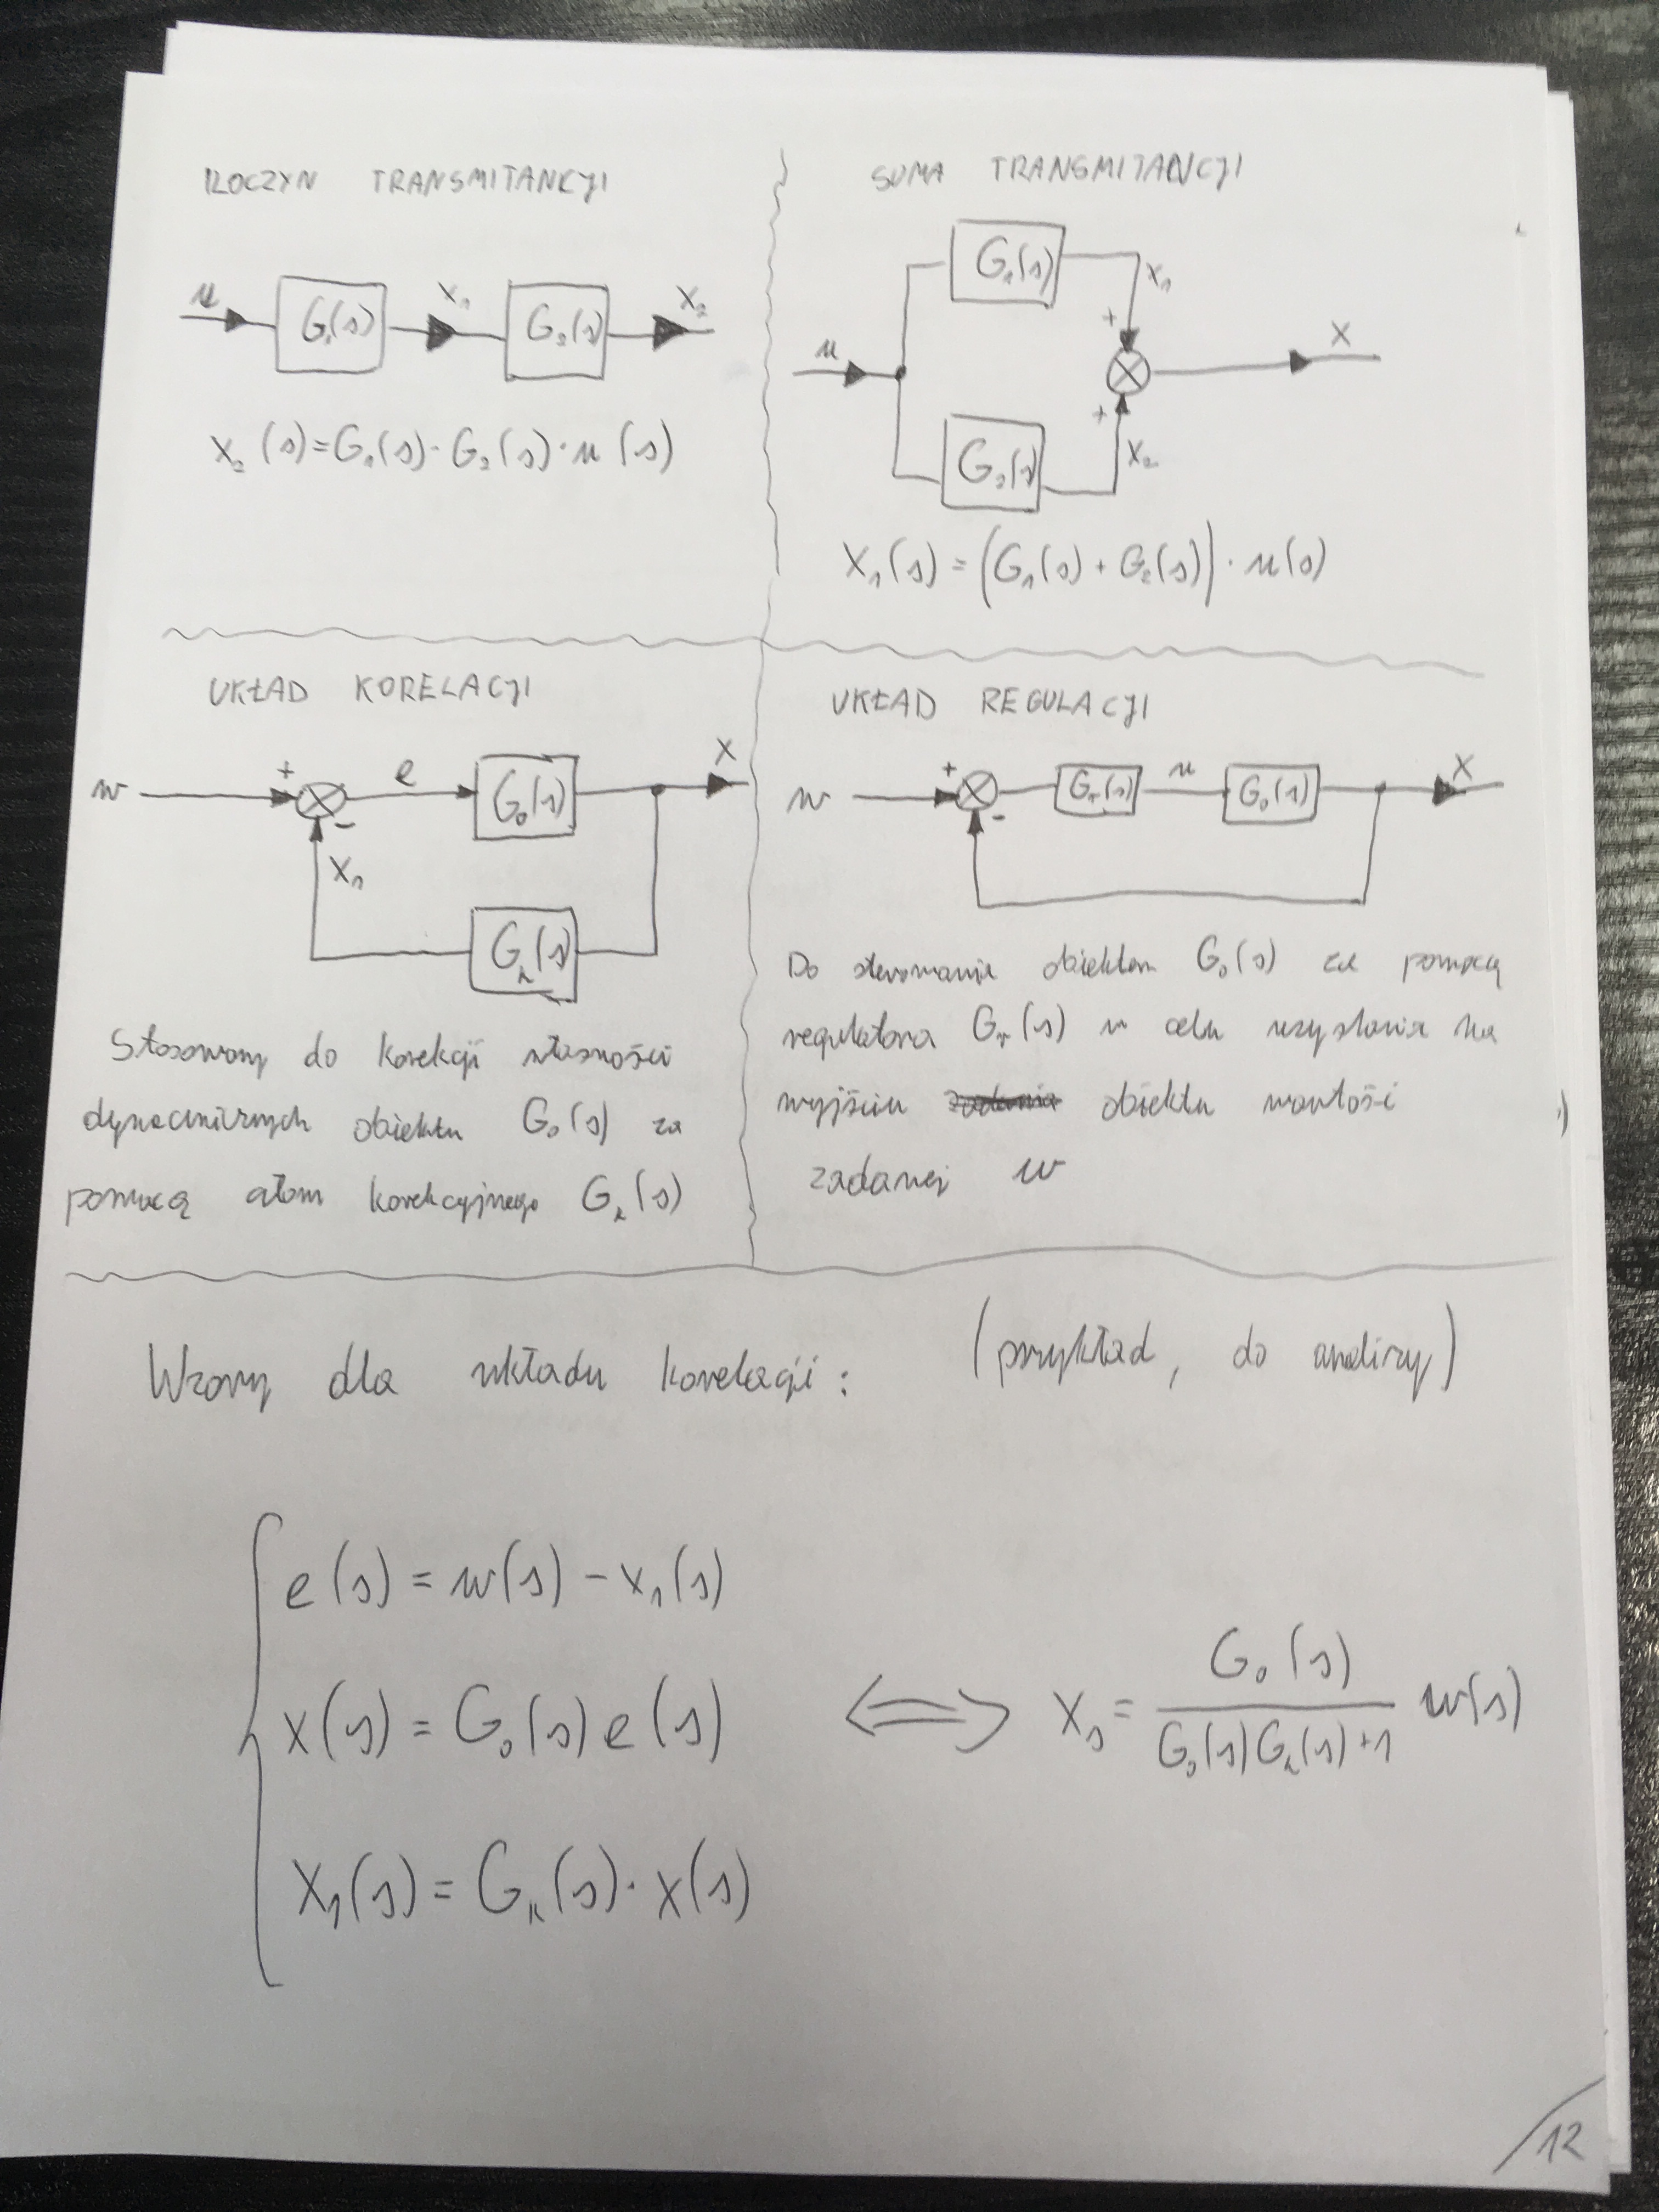 ILOCZYN TRANSMITANCJI
u G₁(s) x₁ G₂(s) x₂
x₂(s)=G₁(s)·G₂(s)·u(s)
SUMA TRANSMITANCJI
G₁(s) x₁
+
u x
+
G₂(s) x₂
X₁(s) = (G₁(s) + G₂(s)) · u(s)
UKŁAD KORELACJI
w + - e G₀(s) x
x₁
Gₖ(s)
Stosowany do korekcji własności
dynamicznych obiektu G₀(s) za
pomocą członu korekcyjnego Gₖ(s)
UKŁAD REGULACJI
w + - Gᵣ(s) u G₀(s) x
Do sterowania obiektem G₀(s) za pomocą
regulatora Gᵣ(s) w celu uzyskania na
wyjściu obiektu wartości
zadanej w
Wzory dla układu korelacji: (przykład, do analizy)
e(s) = w(s) - x₁(s)
x(s) = G₀(s) e(s)
x₁(s) = Gₖ(s) · x(s)
⟺ x₁ = G₀(s) / G₀(s)Gₖ(s)+1 w(s)
12